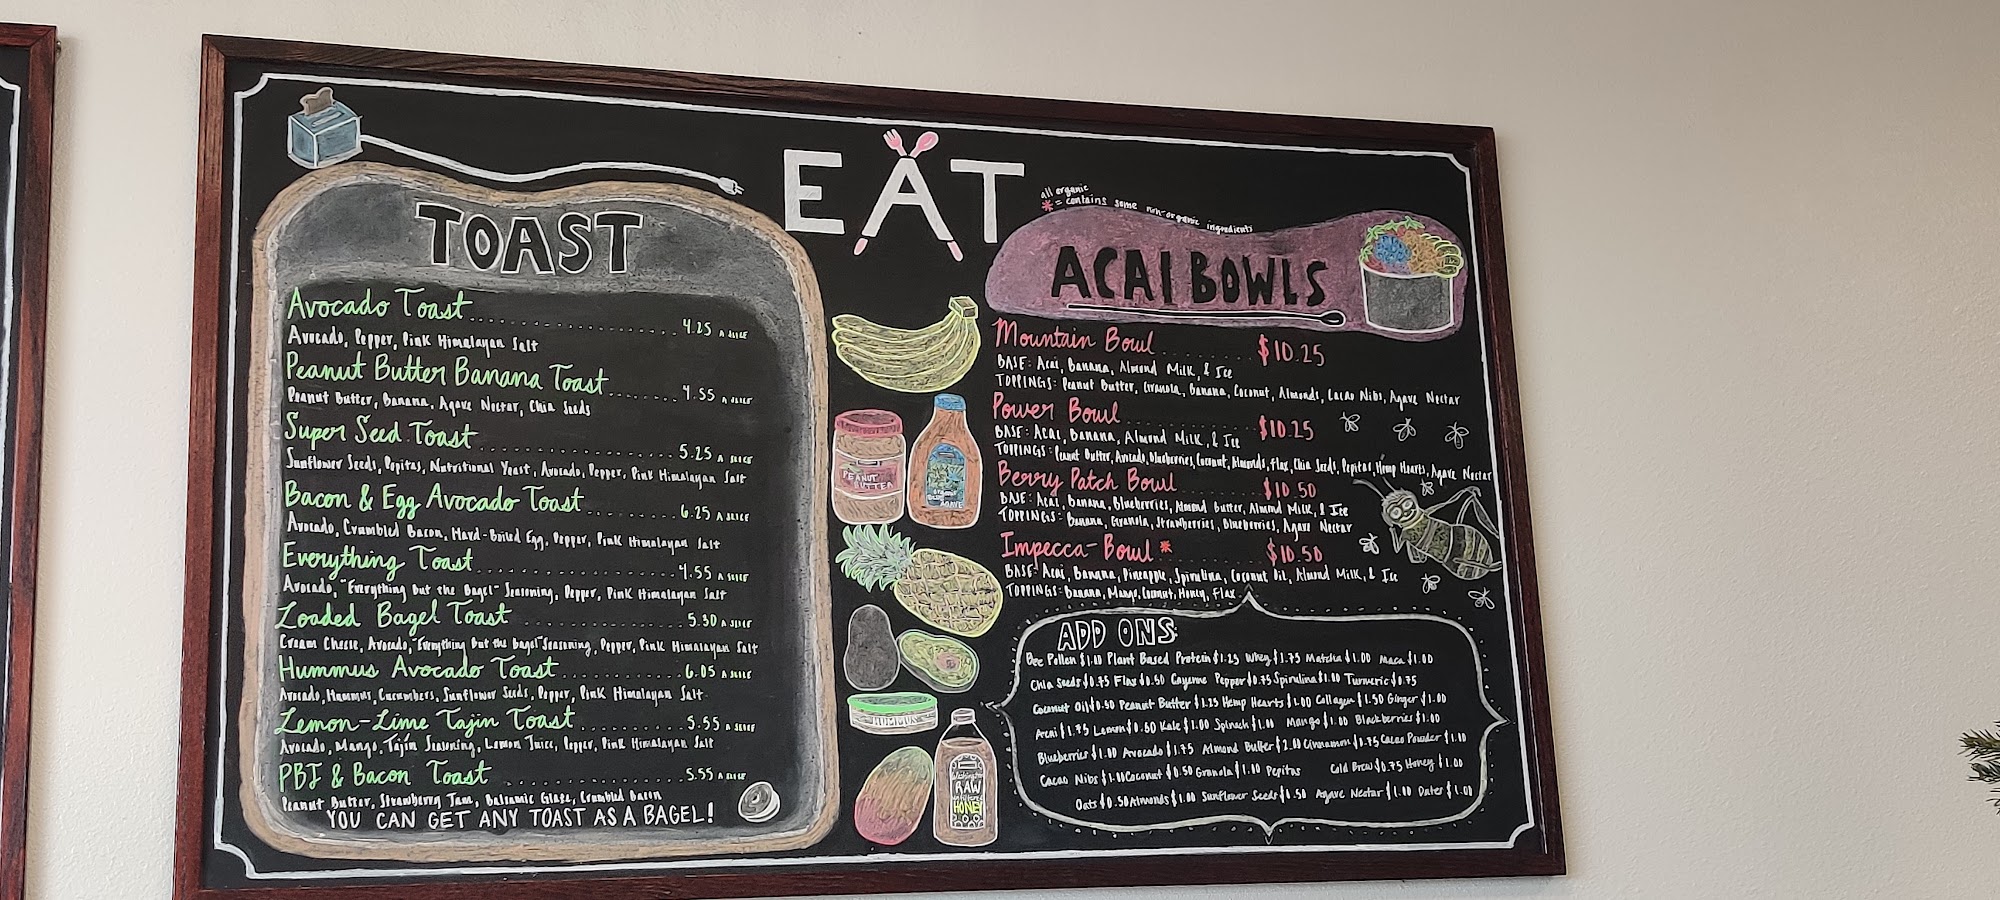 EAT
all organic
* = contains some non-organic ingredients
TOAST
Avocado Toast 4.25 A SLICE
Avocado, Pepper, Pink Himalayan Salt
Peanut Butter Banana Toast 4.55 A SLICE
Peanut Butter, Banana, Agave Nectar, Chia Seeds
Super Seed Toast 5.25 A SLICE
Sunflower Seeds, Pepitas, Nutritional Yeast, Avocado, Pepper, Pink Himalayan Salt
Bacon & Egg Avocado Toast 6.25 A SLICE
Avocado, Crumbled Bacon, Hard-Boiled Egg, Pepper, Pink Himalayan Salt
Everything Toast 4.55 A SLICE
Avocado, "Everything But the Bagel" Seasoning, Pepper, Pink Himalayan Salt
Loaded Bagel Toast 5.30 A SLICE
Cream Cheese, Avocado, "Everything But the bagel" Seasoning, Pepper, Pink Himalayan Salt
Hummus Avocado Toast 6.05 A SLICE
Avocado, Hummus, Cucumbers, Sunflower Seeds, Pepper, Pink Himalayan Salt
Lemon-Lime Tajin Toast 5.55 A SLICE
Avocado, Mango, Tajín Seasoning, Lemon Juice, Pepper, Pink Himalayan Salt
PBJ & Bacon Toast 5.55 A SLICE
Peanut Butter, Strawberry Jam, Balsamic Glaze, Crumbled Bacon
YOU CAN GET ANY TOAST AS A BAGEL!
PEANUT
BUTTER
AGAVE
HUMMUS
Washington
RAW
unfiltered
HONEY
ACAI BOWLS
Mountain Bowl $10.25
BASE: Acai, Banana, Almond Milk, & Ice
TOPPINGS: Peanut Butter, Granola, Banana, Coconut, Almonds, Cacao Nibs, Agave Nectar
Power Bowl $10.25
BASE: Acai, Banana, Almond Milk, & Ice
TOPPINGS: Peanut Butter, Avocado, Blueberries, Coconut, Almonds, Flax, Chia Seeds, Pepitas, Hemp Hearts, Agave Nectar
Berry Patch Bowl $10.50
BASE: Acai, Banana, Blueberries, Almond Butter, Almond Milk, & Ice
TOPPINGS: Banana, Granola, Strawberries, Blueberries, Agave Nectar
Impecca-Bowl * $10.50
BASE: Acai, Banana, Pineapple, Spirulina, Coconut Oil, Almond Milk, & Ice
TOPPINGS: Banana, Mango, Coconut, Honey, Flax
ADD ONS:
Bee Pollen $1.00 Plant Based Protein $1.25 Whey $1.75 Matcha $1.00 Maca $1.00
Chia Seeds $0.75 Flax $0.50 Cayenne Pepper $0.75 Spirulina $1.00 Turmeric $0.75
Coconut Oil $0.50 Peanut Butter $1.25 Hemp Hearts $1.00 Collagen $1.50 Ginger $1.00
Acai $1.75 Lemon $0.60 Kale $1.00 Spinach $1.00 Mango $1.00 Blackberries $1.00
Blueberries $1.00 Avocado $1.75 Almond Butter $2.00 Cinnamon $0.75 Cacao Powder $1.00
Cacao Nibs $1.00 Coconut $0.50 Granola $1.00 Pepitas Cold Brew $0.75 Honey $1.00
Oats $0.50 Almonds $1.00 Sunflower Seeds $0.50 Agave Nectar $1.00 Dates $1.00